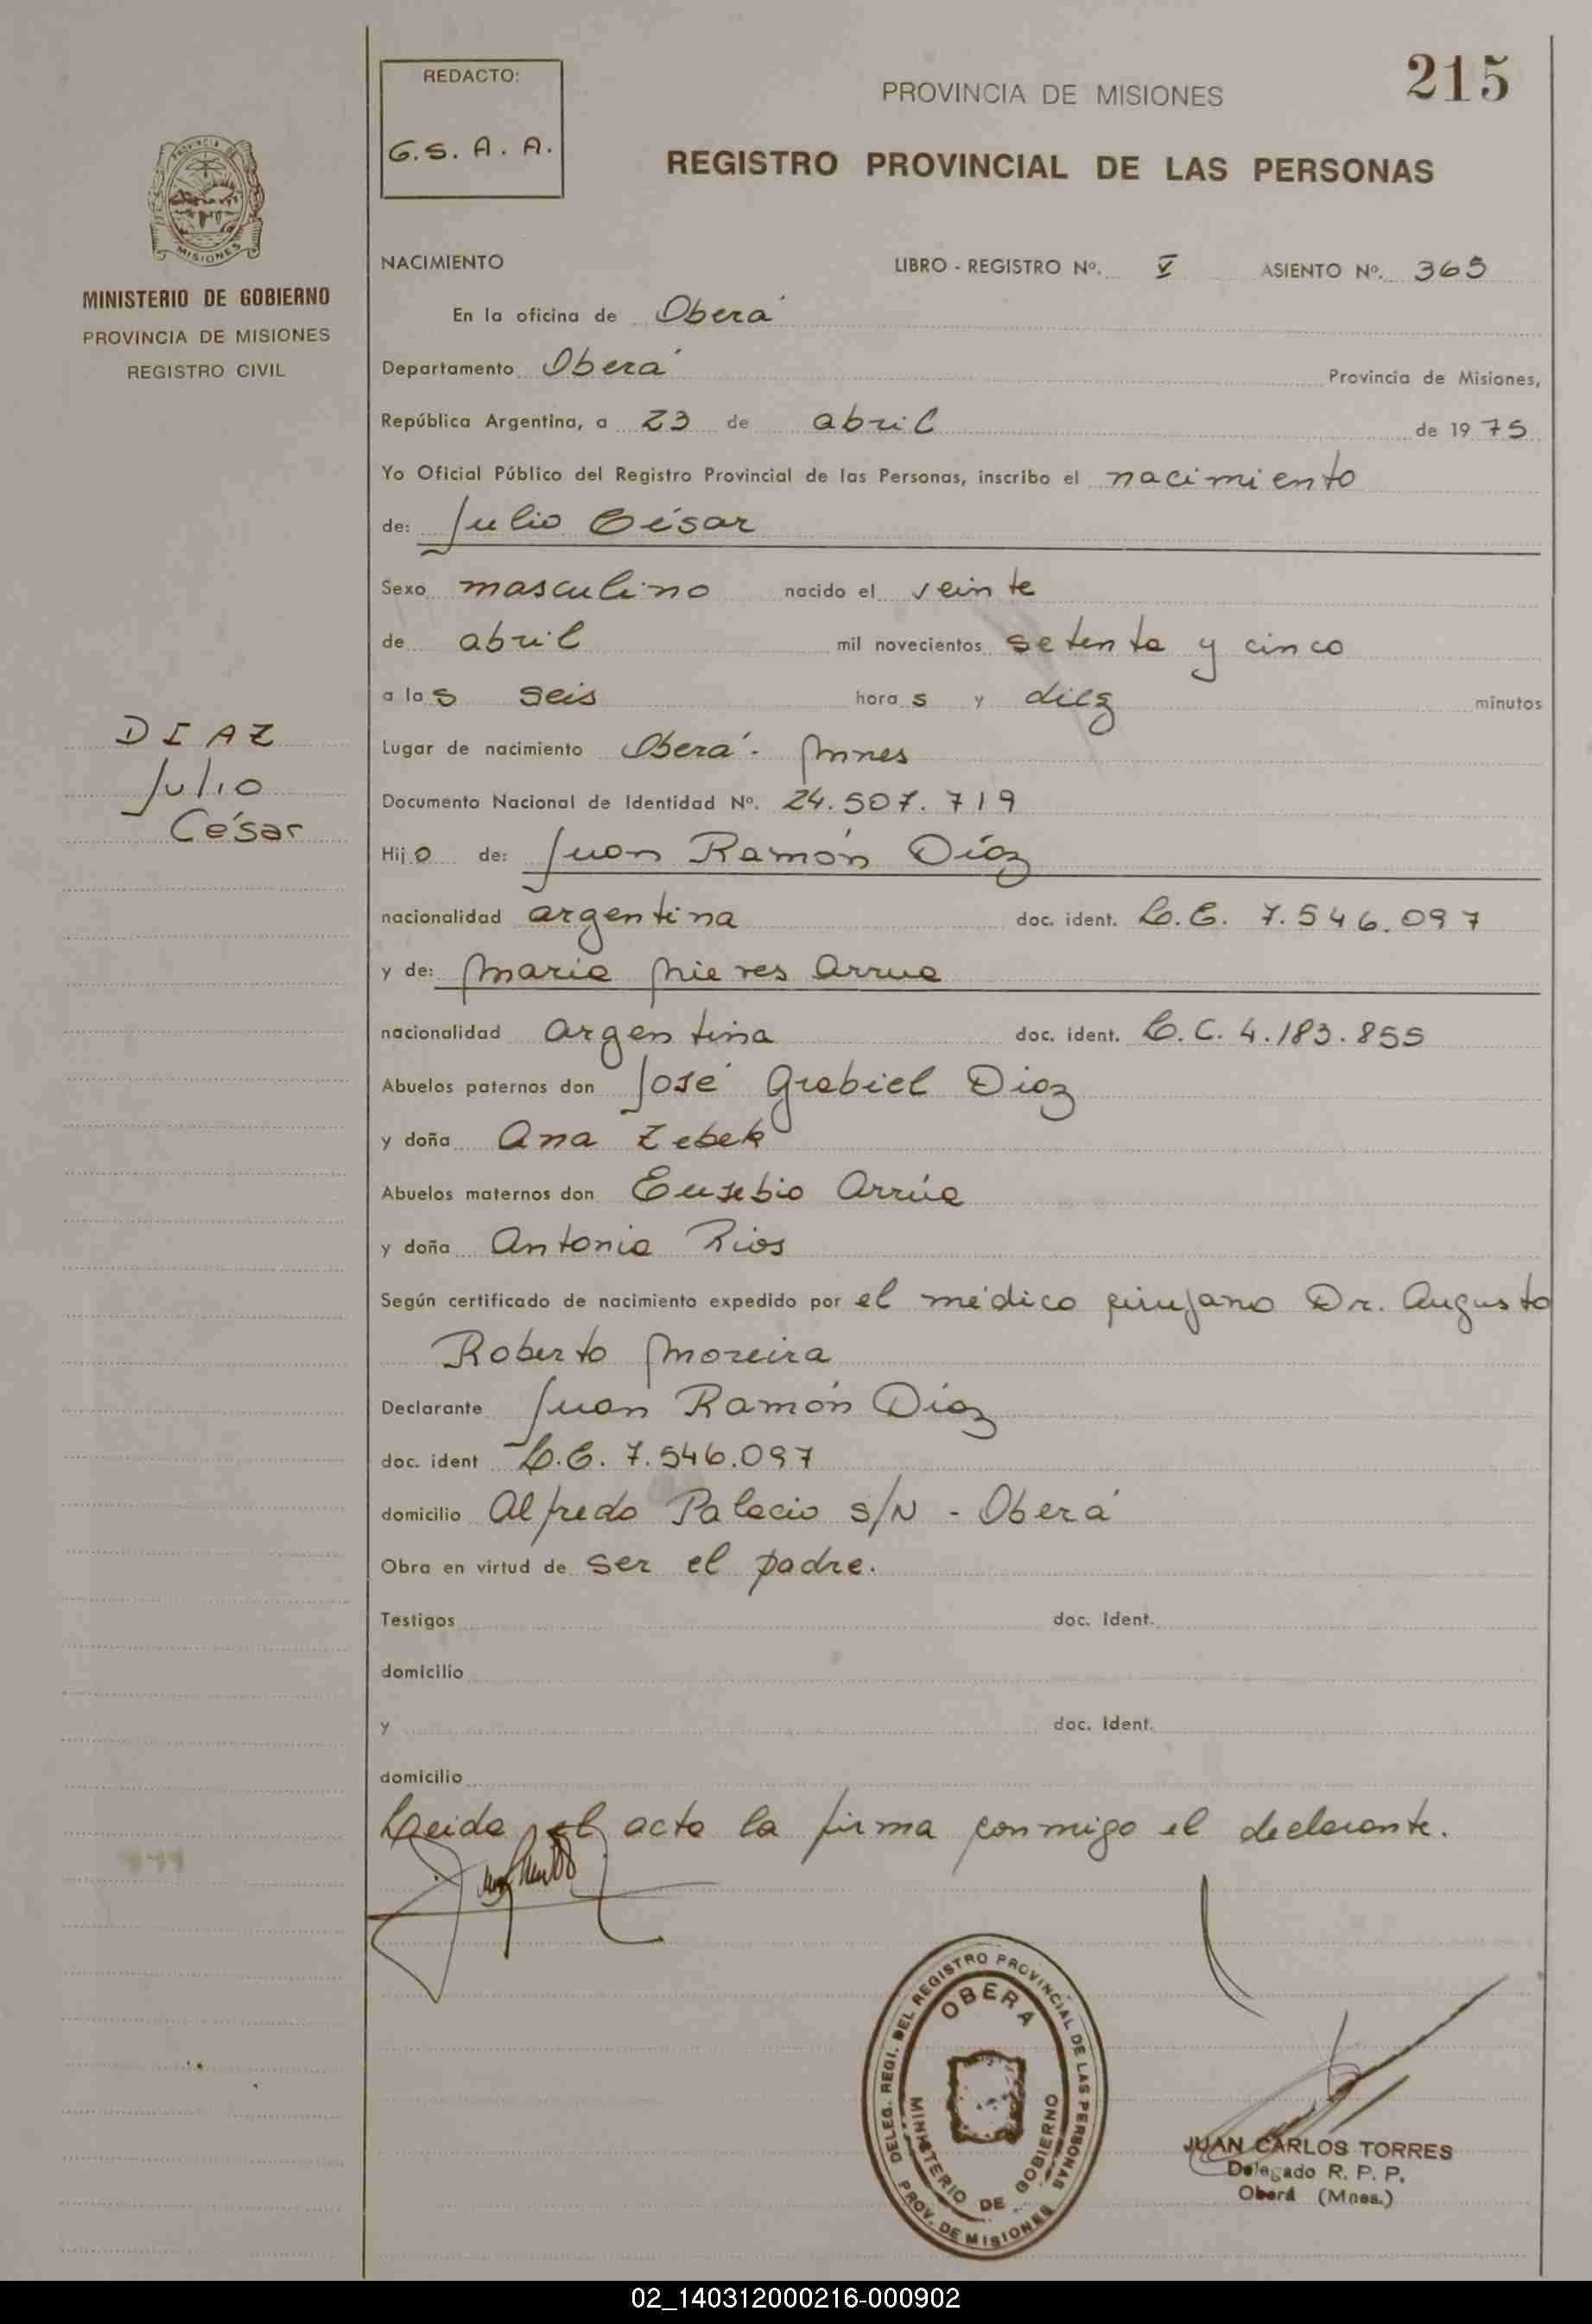 REDACTO:
G.S.A.A.
PROVINCIA DE MISIONES
215
REGISTRO PROVINCIAL DE LAS PERSONAS
PROVINCIA DE
MISIONES
MINISTERIO DE GOBIERNO
PROVINCIA DE MISIONES
REGISTRO CIVIL
DIAZ
Julio
César
NACIMIENTO LIBRO - REGISTRO Nº. V ASIENTO Nº. 365
En la oficina de Oberá
Departamento Oberá Provincia de Misiones,
República Argentina, a 23 de abril de 1975
Yo Oficial Público del Registro Provincial de las Personas, inscribo el nacimiento
de: Julio César
Sexo masculino nacido el veinte
de abril mil novecientos setenta y cinco
a las seis horas y diez minutos
Lugar de nacimiento Oberá - Mnes
Documento Nacional de Identidad Nº. 24.507.719
Hijo de: Juan Ramón Díaz
nacionalidad argentina doc. ident. L.E. 7.546.097
y de: Maria Nieves Arrua
nacionalidad argentina doc. ident. L.C. 4.183.855
Abuelos paternos don José Grabiel Diaz
y doña Ana Zebek
Abuelos maternos don Eusebio Arrúa
y doña Antonia Rios
Según certificado de nacimiento expedido por el médico cirujano Dr. Augusto
Roberto Moreira
Declarante Juan Ramón Díaz
doc. ident L.E. 7.546.097
domicilio Alfredo Palacio s/N - Oberá
Obra en virtud de ser el padre.
Testigos doc. Ident.
domicilio
y doc. Ident.
domicilio
Leida el acta la firma conmigo el declarante.
DELEG. REGI. DEL REGISTRO PROVINCIAL DE LAS PERSONAS
OBERA
MINISTERIO DE GOBIERNO
PROV. DE MISIONES
JUAN CARLOS TORRES
Delegado R. P. P.
Oberá (Mnes.)
02_140312000216-000902